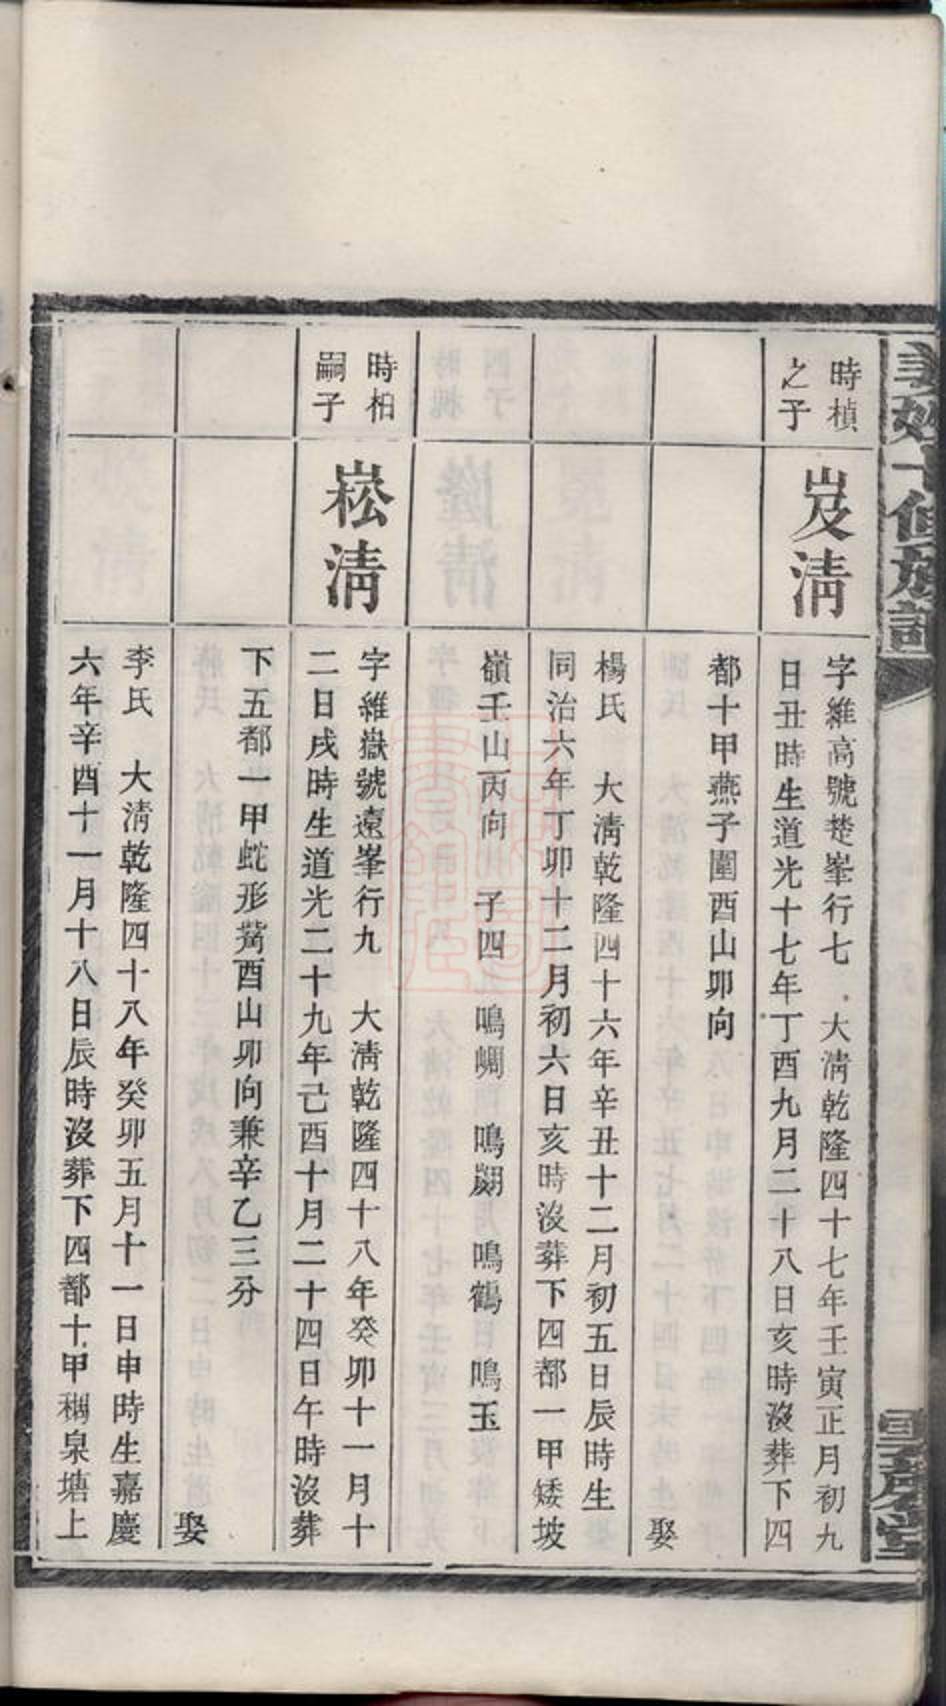 時楨
之子
岌淸
字維高號楚峯行七 大淸乾隆四十七年壬寅正月初九
日丑時生道光十七年丁酉九月二十八日亥時沒葬下四
都十甲燕子圍酉山卯向
娶
楊氏 大淸乾隆四十六年辛丑十二月初五日辰時生
同治六年丁卯十二月初六日亥時沒葬下四都一甲矮坡
嶺壬山丙向 子四 鳴蜩 鳴翽 鳴鶴 鳴玉
時柏
嗣子
崧淸
字維嶽號遠峯行九 大淸乾隆四十八年癸卯十一月十
二日戌時生道光二十九年己酉十月二十四日午時沒葬
下五都一甲蛇形嵜酉山卯向兼辛乙三分
娶
李氏 大淸乾隆四十八年癸卯五月十一日申時生嘉慶
六年辛酉十一月十八日辰時沒葬下四都十甲稠泉塘上